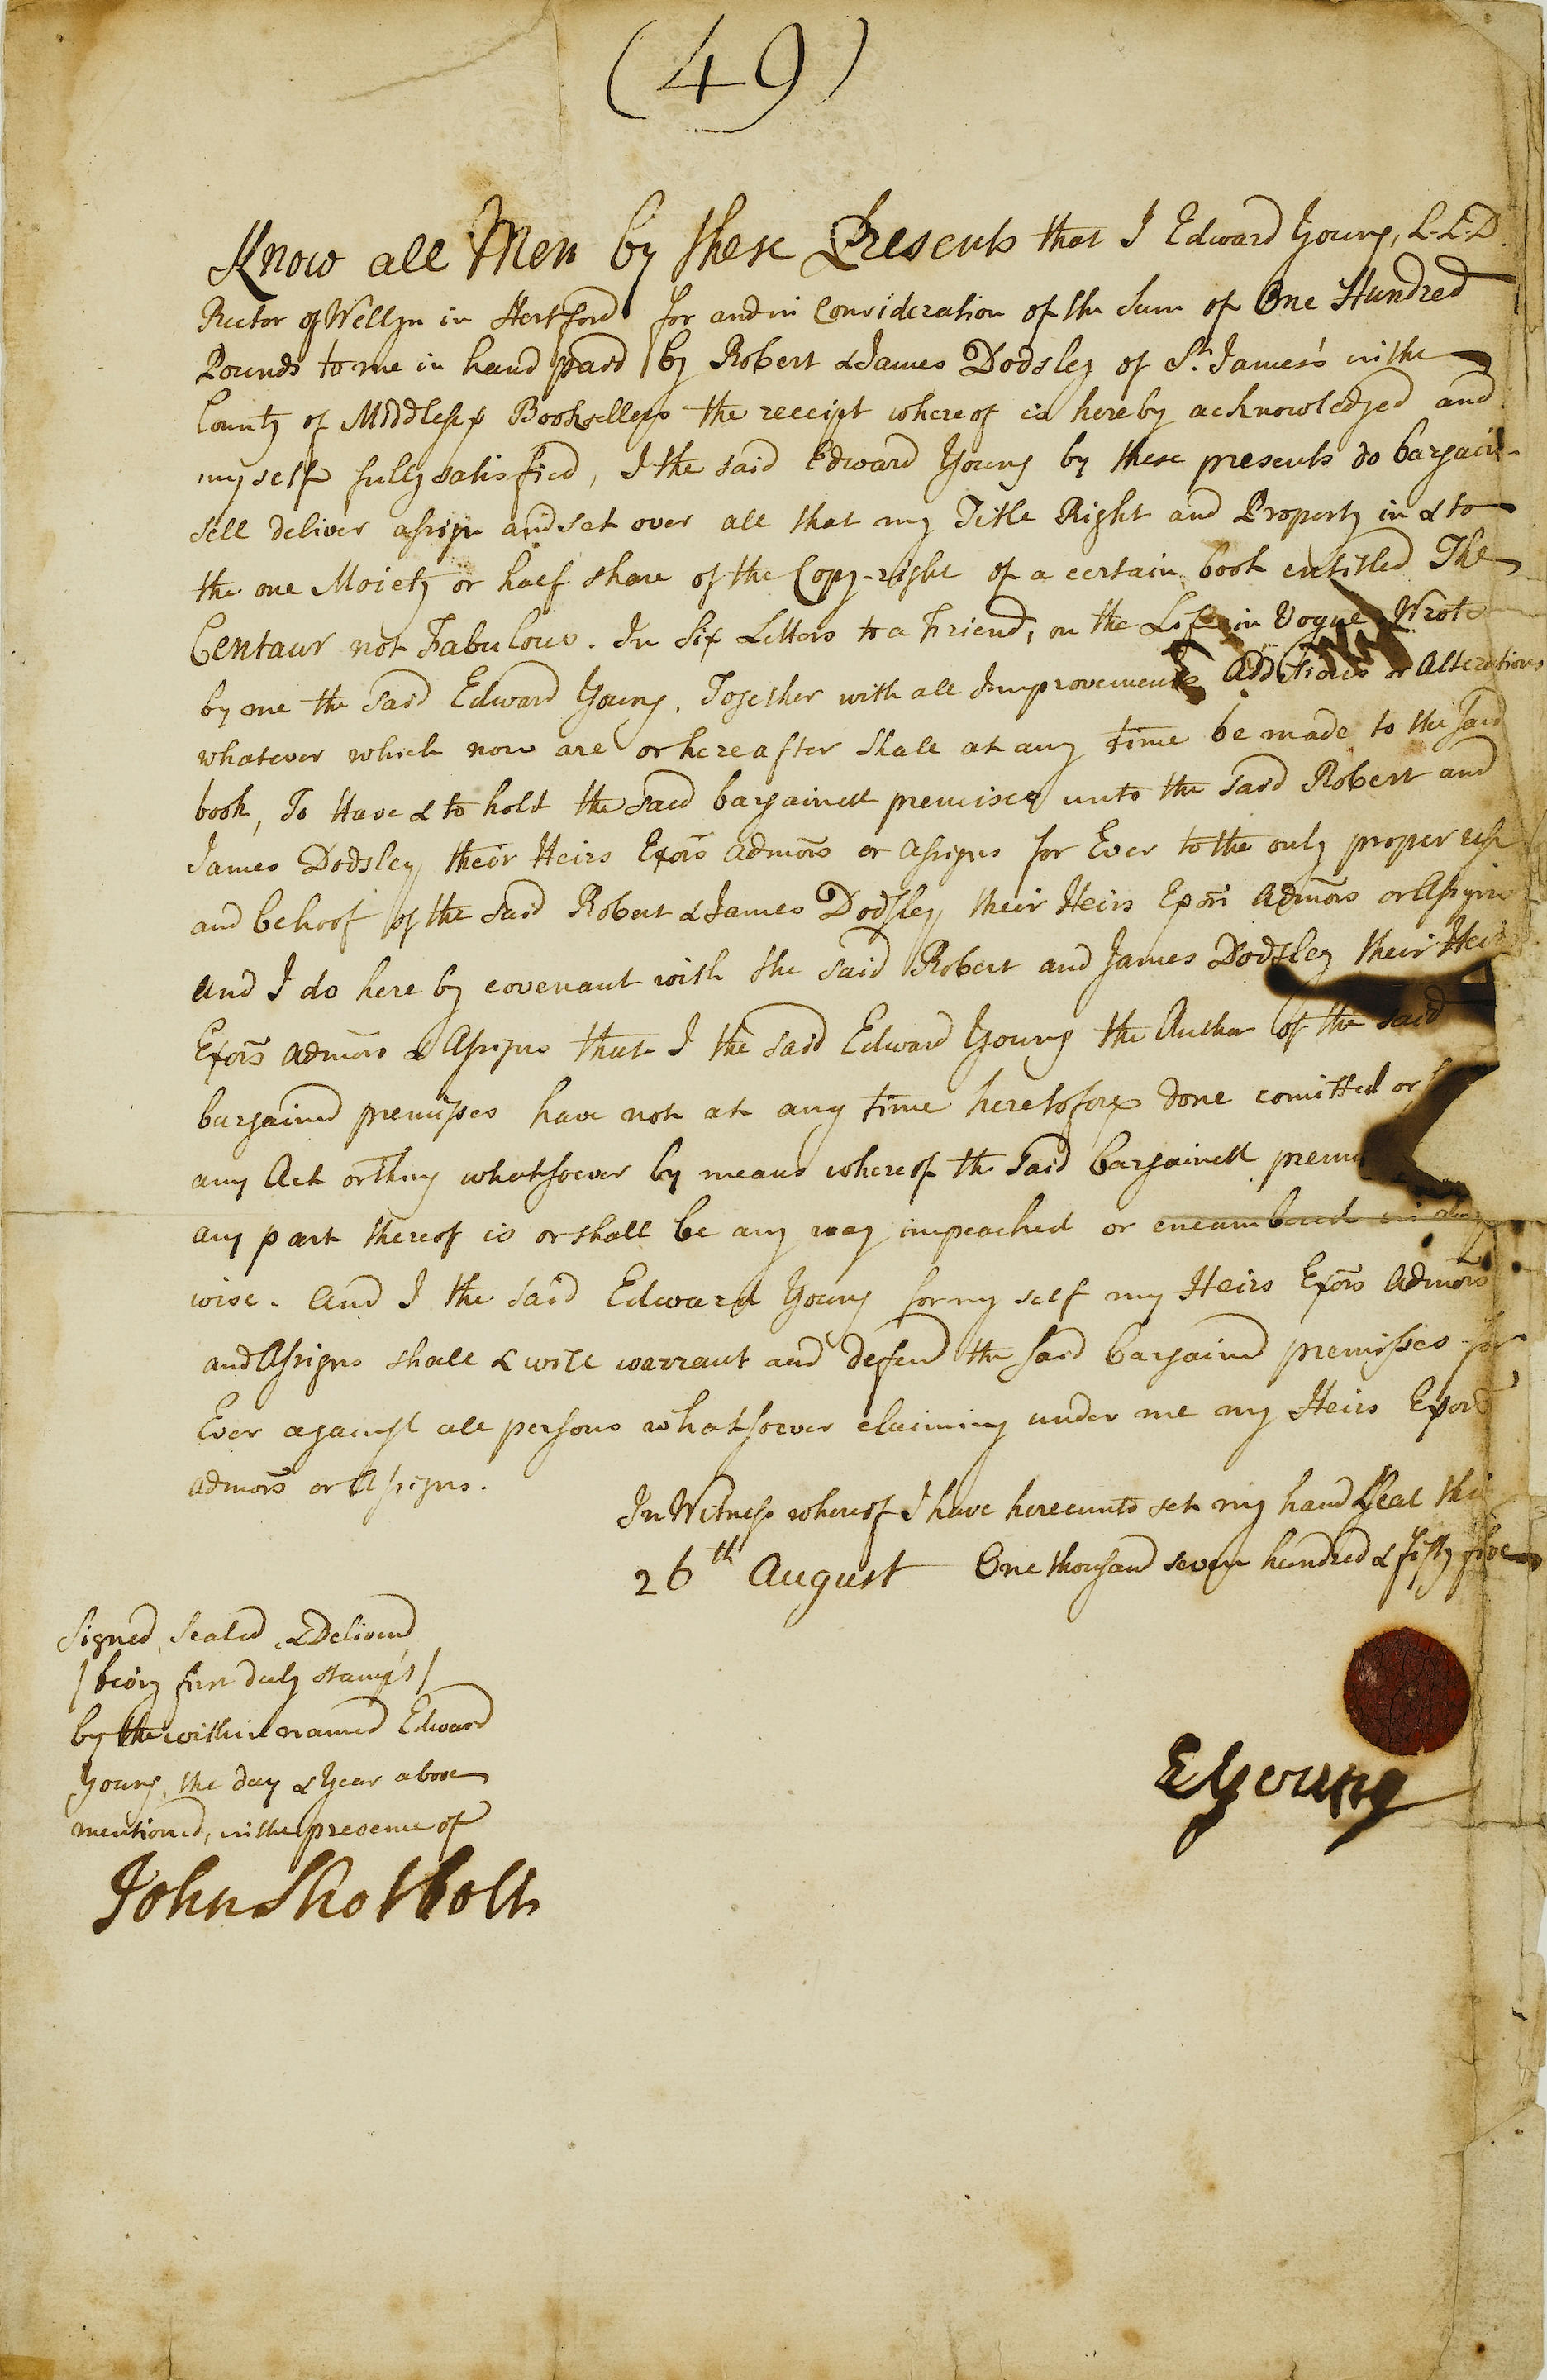 (49)
Know all Men by these Presents that I Edward Young, L.L.D
Rector of Wellyn in Hertford for and in Consideration of the Sum of One Hundred
Pounds to me in hand paid by Robert & James Dodsley of St. James's in the
County of Middlesex Booksellers the receipt whereof is hereby acknowledged and
myself fully satisfied, I the said Edward Young by these presents do bargain
sell deliver assign and set over all that my Title Right and Property in & to
the one Moiety or half share of the Copy-right of a certain book entitled The
Centaur not Fabulous. In Six Letters to a Friend, on the Life in Vogue Wrote
by me the said Edward Young. Together with all Improvements Additions or Alterations
whatever which now are or hereafter shall at any time be made to the said
book, To Have & to hold the said bargained premises unto the said Robert and
James Dodsley their Heirs Exors Admors or Assigns for Ever to the only proper use
and behoof of the said Robert & James Dodsley their Heirs Exors Admors or Assigns
And I do here by covenant with the said Robert and James Dodsley their Heirs
Exors Admors & Assigns that I the said Edward Young the Author of the said
bargained premisses have not at any time heretofore done comitted or
any Act or thing whatsoever by means whereof the said bargained premi
any part thereof is or shall be any way impeached or encumbered in any
wise. And I the said Edward Young for my self my Heirs Exors Admors
and Assigns shall & will warrant and defend the said bargained premisses for
Ever against all persons whatsoever claiming under me my Heirs Exors
Admors or Assigns.
In Witness whereof I have hereunto set my hand & Seal this
26th August One thousand seven hundred & fifty five
Signed, Sealed & Deliver'd
/being first duly stamp'd/
by the within named Edward
Young, the day & Year above
mentioned, in the presence of
John Shotbolt
E Young